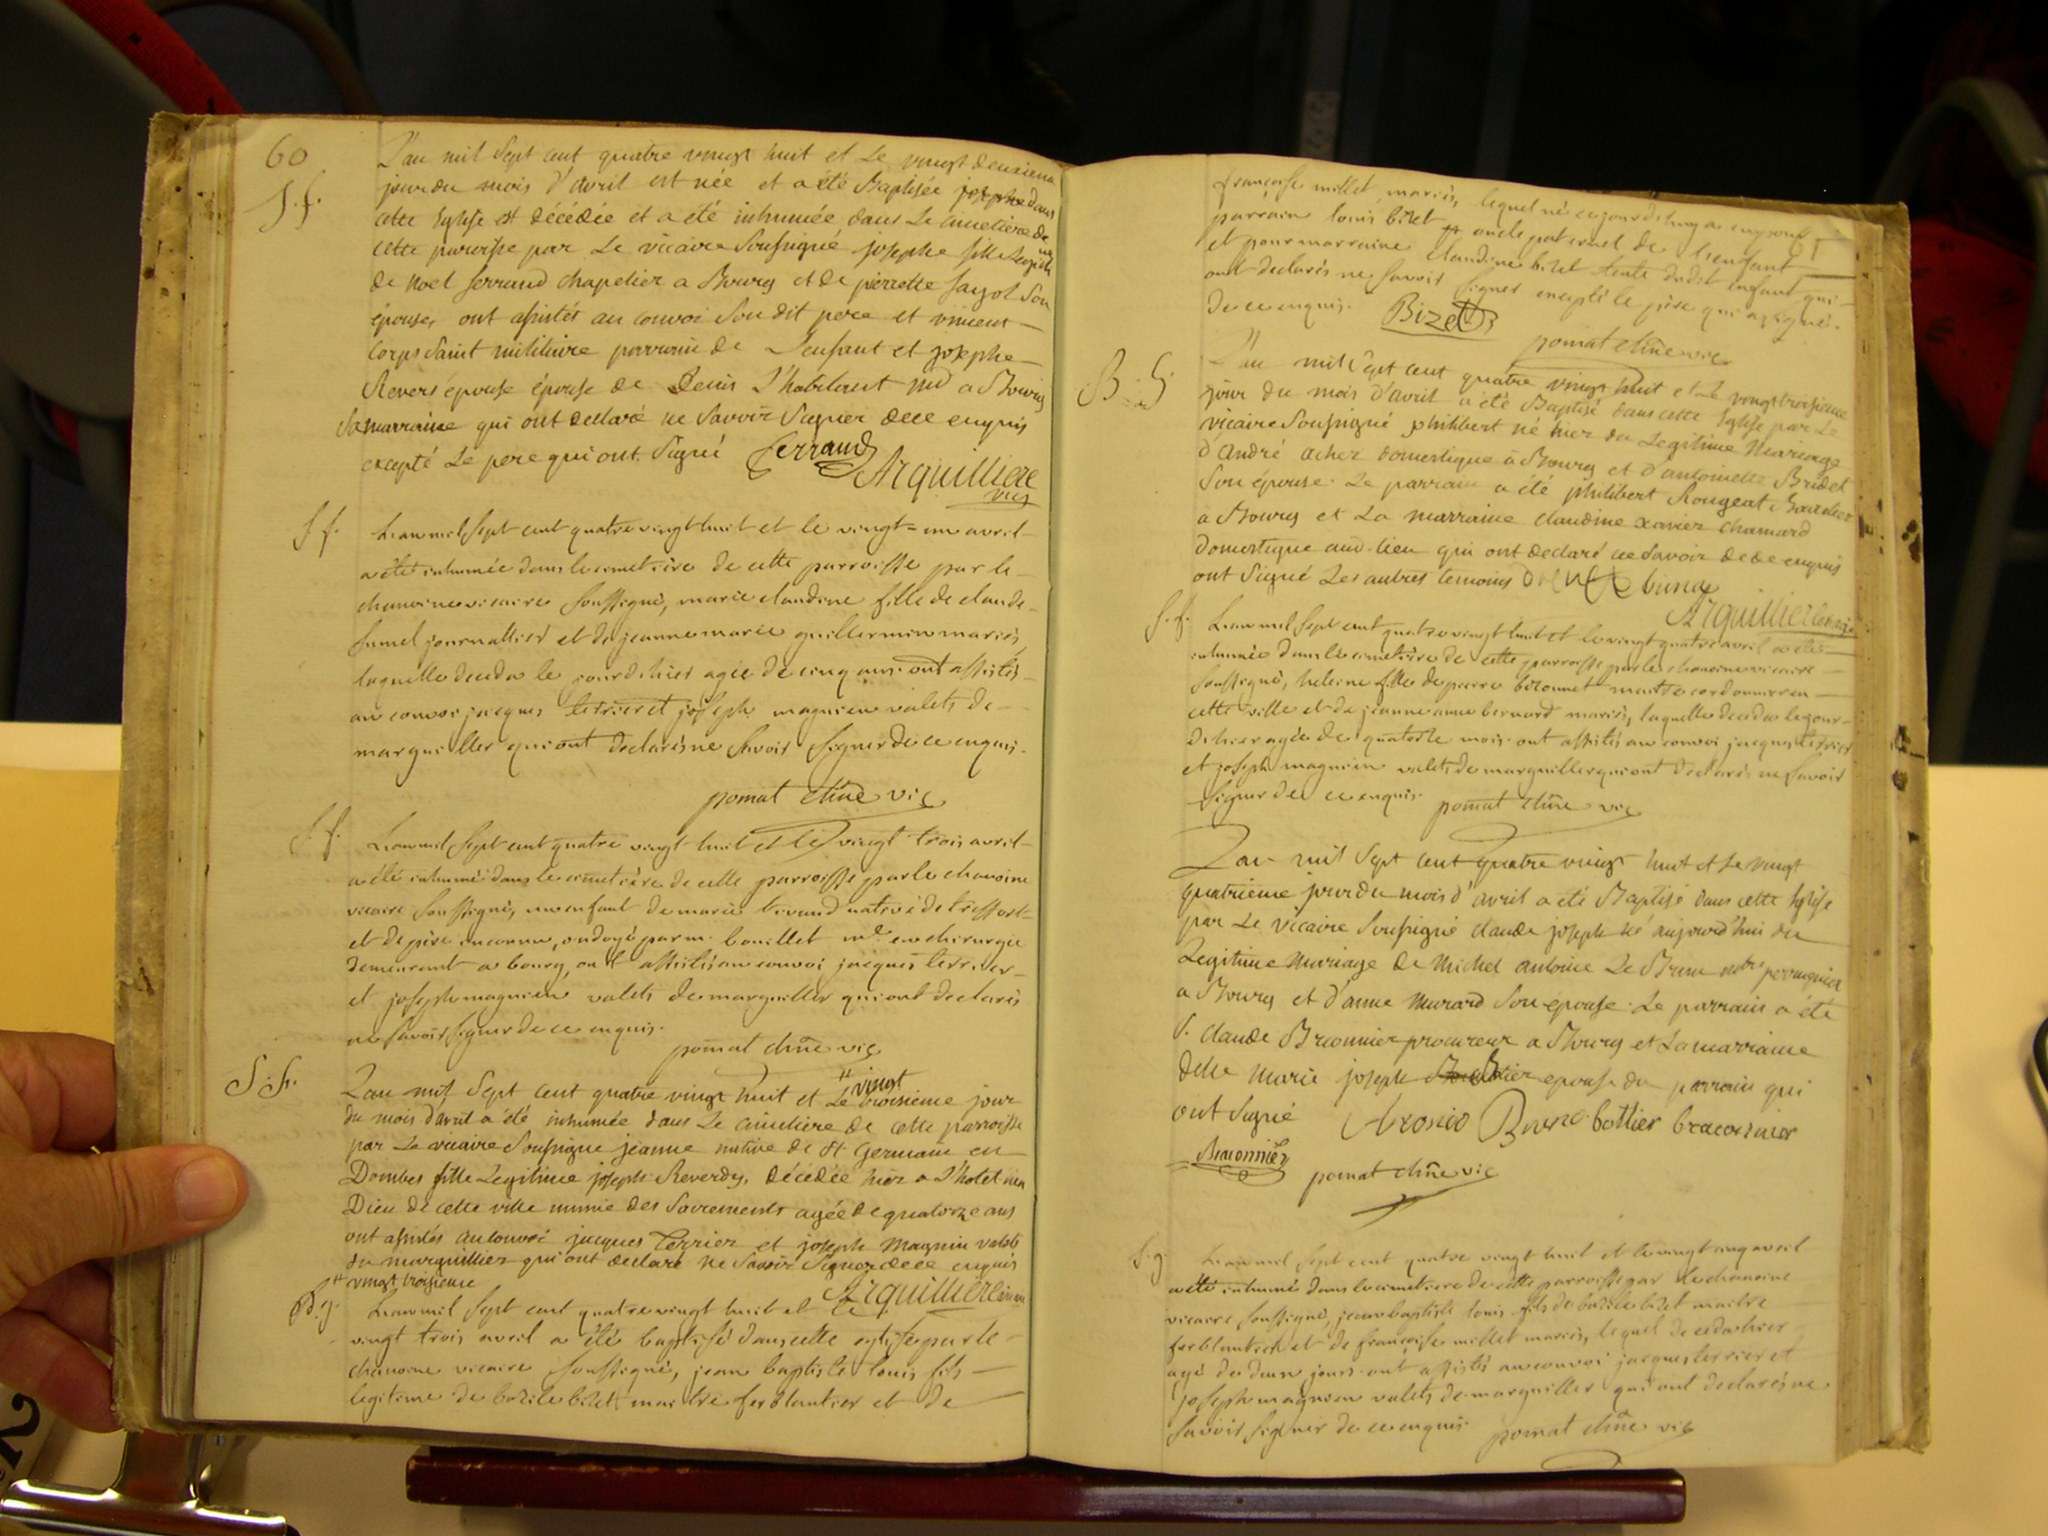 60
L'an mil sept cent quatre vingt huit et le vingt deuxieme
S. f.
jour du mois d'avril est née et a été Baptisée josephe dans
cette Eglise est décédée et a été inhumée dans le cimetiere de
cette paroisse par le vicaire soussigné josephe fille
de Noel ferrand chapelier a Bourg et de pierrette fayol son
épouse, ont assistés au convoi son dit pere et vincent
corps saint militaire parrain de l'enfant et josephe
Revers épouse épouse de Denis l'habitant md a Bourg
sa marraine qui ont declaré ne savoir signer dece enquis
excepté le pere qui ont signé ferrand
Arquilliere
vic
S f.
L'an mil sept cent quatre vingt huit et le vingt-un avril
a été inhumée dans le cimetiere de cette parroisse par le
chanoine vicaire soussigné, marie claudine fille de claude
jumel journallier et de jeanne marie guillermin mariés,
laquelle deceda le jour d'hier agée de cinq ans. ont assistés
au convoi jacques terrier et joseph magnien valets de
marguiller qui ont declarés ne savoir signer de ce enquis.
pomat chñe vic
S f.
L'an mil sept cent quatre vingt huit et le vingt trois avril
a été inhumé dans le cimetiere de cette parroisse par le chanoine
vicaire soussigné, un enfant de marie tivand native de treffort
et de père inconnu, ondoyé par m. bouillet me en chirurgie
demeurant a bourg, ont assistés au convoi jacques terrier
et joseph magnien valets de marguiller qui ont declarés
ne savoir signer de ce enquis.
pomat chñe vic
S. f.
L'an mil sept cent quatre vingt huit et le # vingt troisieme jour
du mois d'avril a été inhumée dans le cimetiere de cette parroisse
par le vicaire soussigné jeanne native de St Germain en
Dombes fille legitime joseph Reverdy, décédée hier a l'hotel
Dieu de cette ville munie des sacrements agée de quatorze ans
ont assistés au convoi jacques Terrier et joseph Magnin valets
du marguillier qui ont declaré ne savoir signer dece enquis
# vingt troisieme
Arquilliere
B. g.
L'an mil sept cent quatre vingt huit et le
vingt trois avril a été baptisé dans cette eglise par le
chanoine vicaire soussigné, jean baptiste louis fils
legitime de bazile bizet maitre ferblantier et de
françoise millet mariés, lequel né cejourdhuy a eu pour
61
parrain louis bizet oncle paternel de l'enfant
et pour marraine Claudine bizet tante dudit enfant qui
ont declarés ne savoir signer excepté le père qui a signé.
de ce enquis. Bizet
pomat chñe vic
B. G.
L'an mil sept cent quatre vingt huit et le vingt troisieme
jour du mois d'avril a été Baptisé dans cette Eglise par le
vicaire soussigné philibert né hier du legitime Mariage
d'André acher domestique a Bourg et d'antoinette Bridet
son épouse. Le parrain a été philibert Rougeat
a Bourg et la marraine claudine xavier chamard
domestique aud. lieu qui ont declaré ne savoir de ce enquis
ont signé les autres temoins
Arquilliere
S. f.
L'an mil sept cent quatre vingt huit et le vingt quatre avril a été
inhumée dans le cimetière de cette parroisse par le chanoine vicaire
soussigné, heleine fille de pierre bitonnet maitre cordonnier en
cette ville et de jeanne anne bernard mariés, laquelle deceda le jour
d'hier agée de quatorze mois. ont assistés au convoi jacques terrier
et joseph magnien valets de marguiller qui ont declarés ne savoir
signer de ce enquis. pomat chñe vic
L'an mil sept cent quatre vingt huit et le vingt
quatrieme jour du mois d'avril a été Baptisé dans cette Eglise
par le vicaire soussigné claude joseph né aujourd'hui du
legitime mariage de Michel antoine Le Brun perruquier
a Bourg et d'anne Murard son épouse. Le parrain a été
S. claude Braconnier procureur a Bourg et la marraine
delle marie joseph Bottier epouse du parrain qui
ont signé bottier braconnier
Braconnier
pomat chñe vic
S. g.
L'an mil sept cent quatre vingt huit et le vingt cinq avril
a été inhumé dans le cimetiere de cette parroisse par le chanoine
vicaire soussigné, jean baptiste louis fils de bazile bizet maitre
ferblantier et de françoise millet mariés, lequel deceda hier
agé de deux jours. ont assistés au convoi jacques terrier et
joseph magnien valets de marguiller qui ont declarés ne
savoir signer de ce enquis. pomat chñe vic